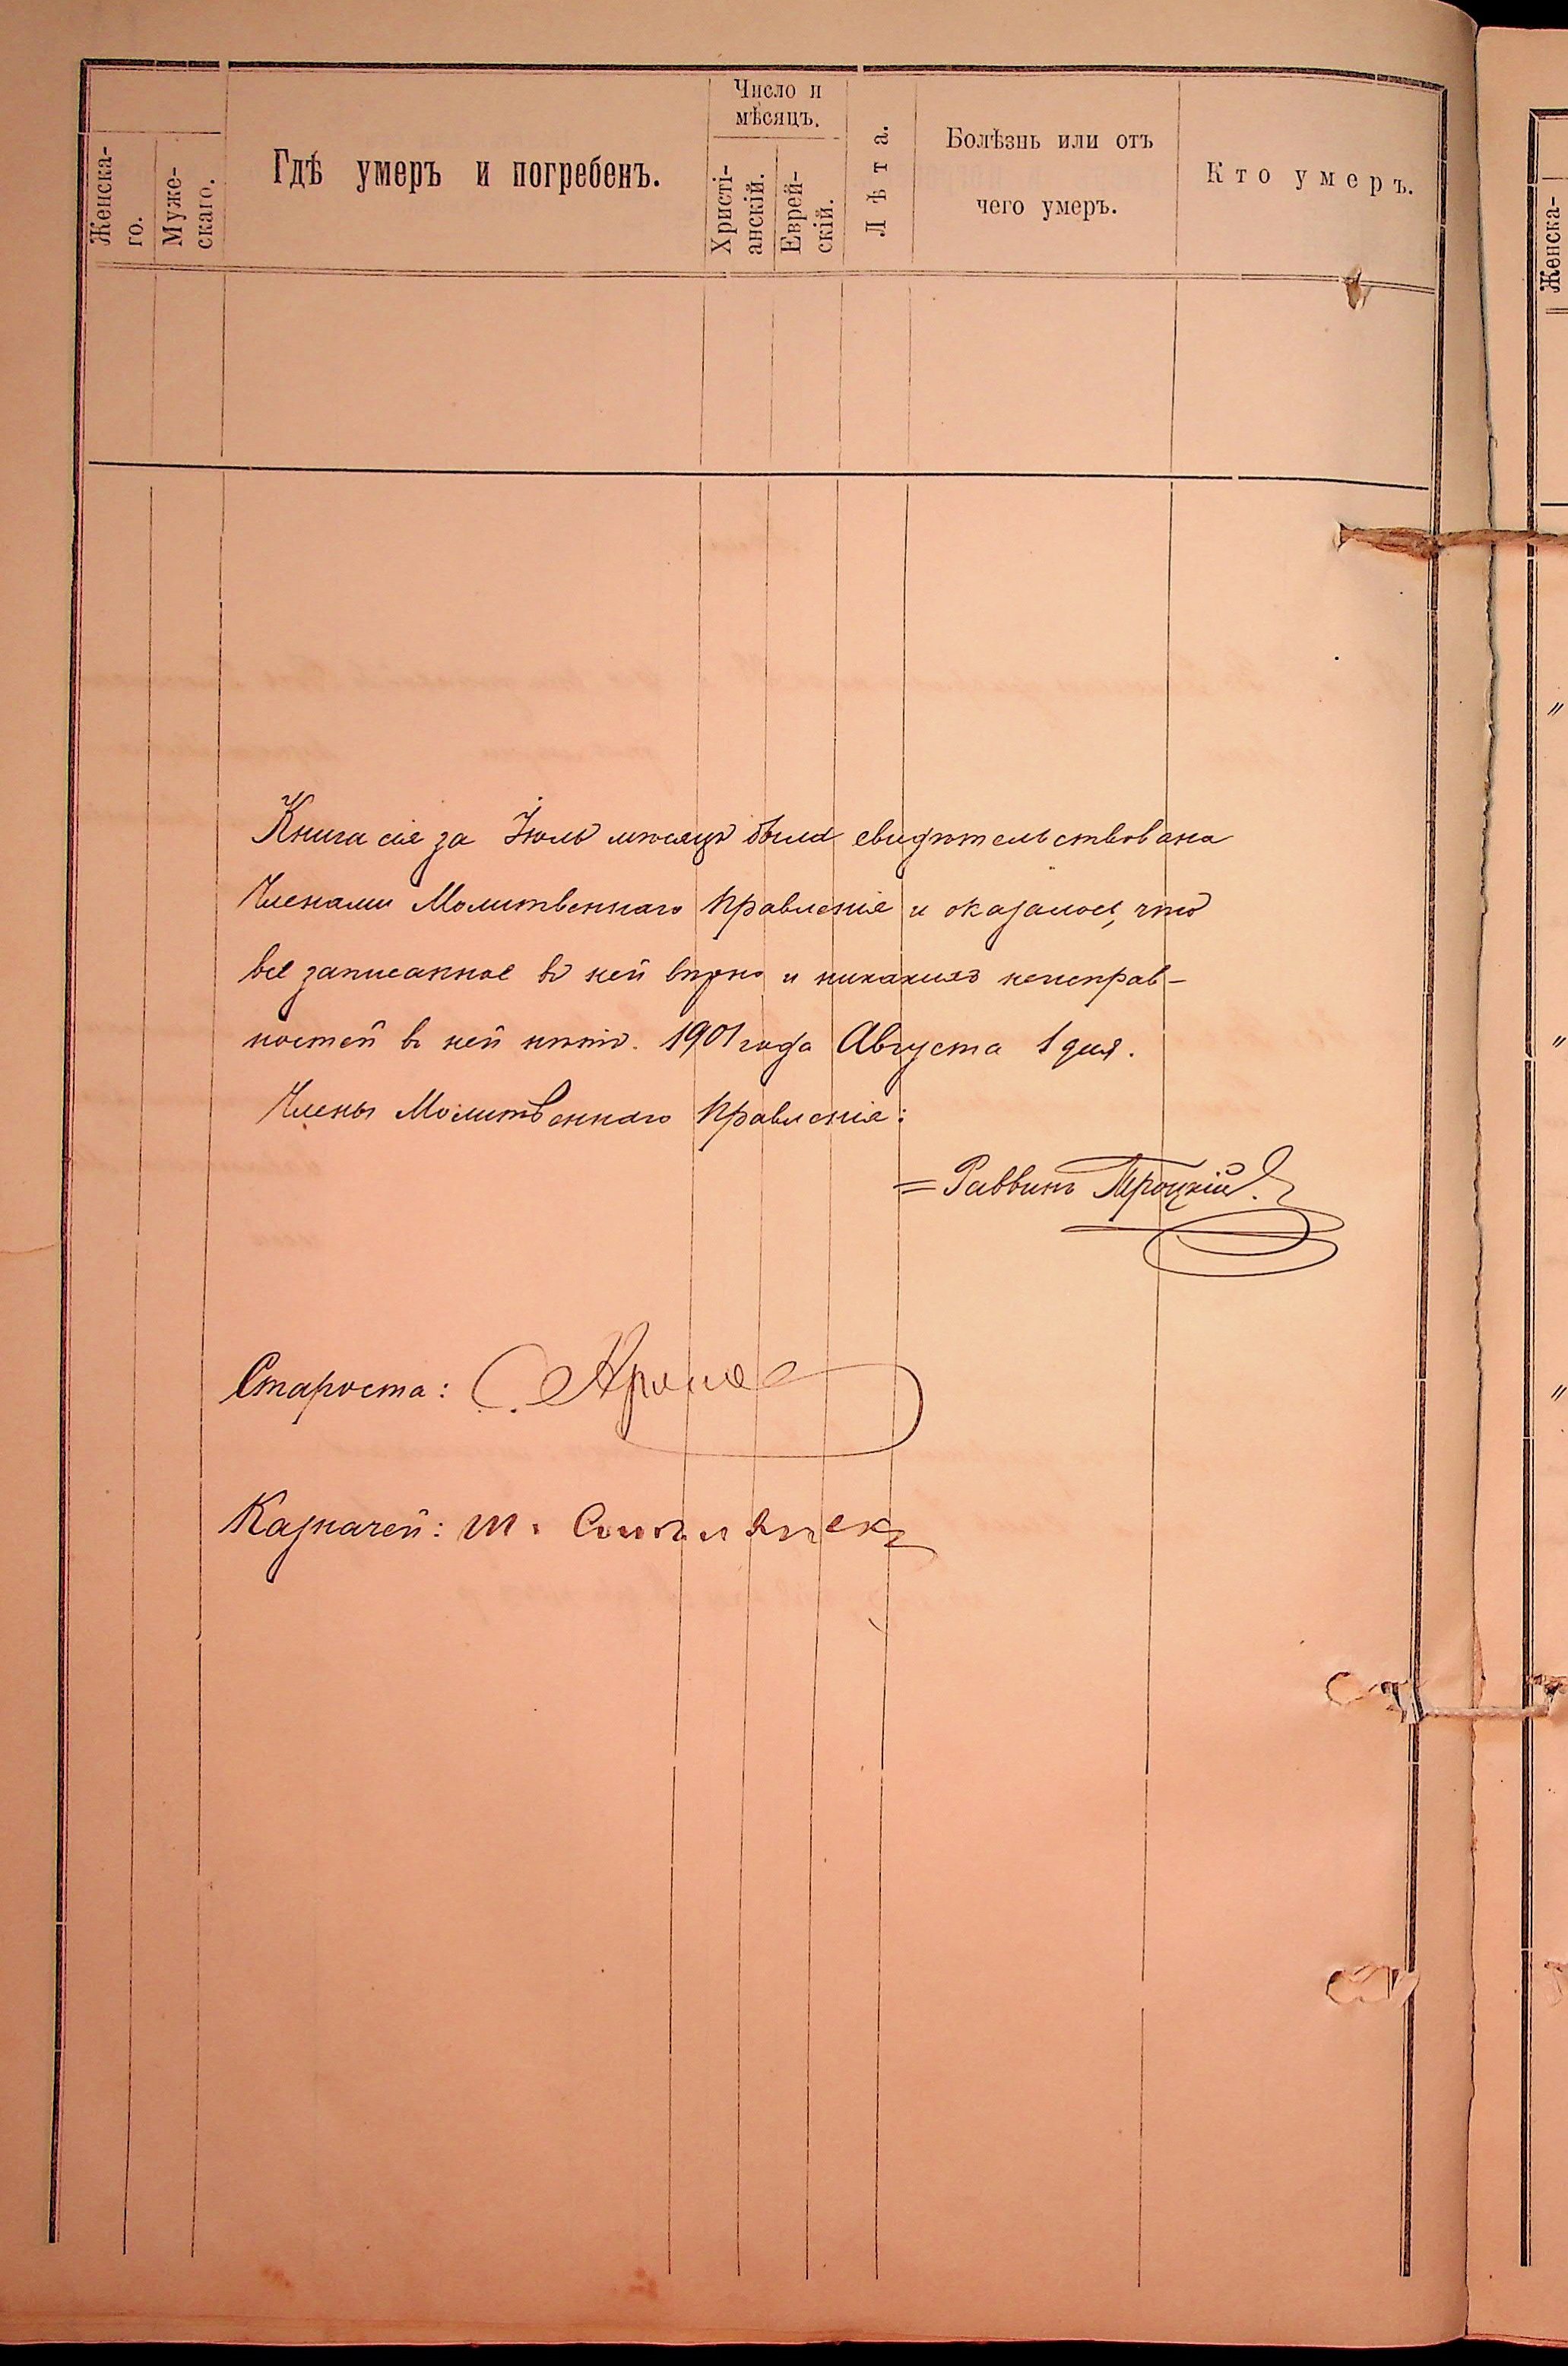 Женска-
го.
Муже-
скаго.
Гдѣ умеръ и погребенъ.
Число и
мѣсяцъ.
Христі-
анскій.
Еврей-
скій.
Лѣта.
Болѣзнь или отъ
чего умеръ.
Кто умеръ.
Женска-
Книга сія за Іюль мѣсяцъ была свидѣтельствована
Членами Молитвеннаго Правленія и оказалось, что
все записанное въ ней вѣрно и никакихъ неисправ-
ностей въ ней нѣтъ. 1901 года Августа 1 дня.
Члены Молитвеннаго Правленія:
= Раввинъ Троцкій.
Староста: С.
Казначей: Ш.
"
"
"